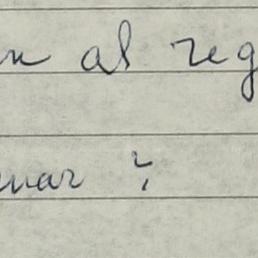 n al reg
uar ?